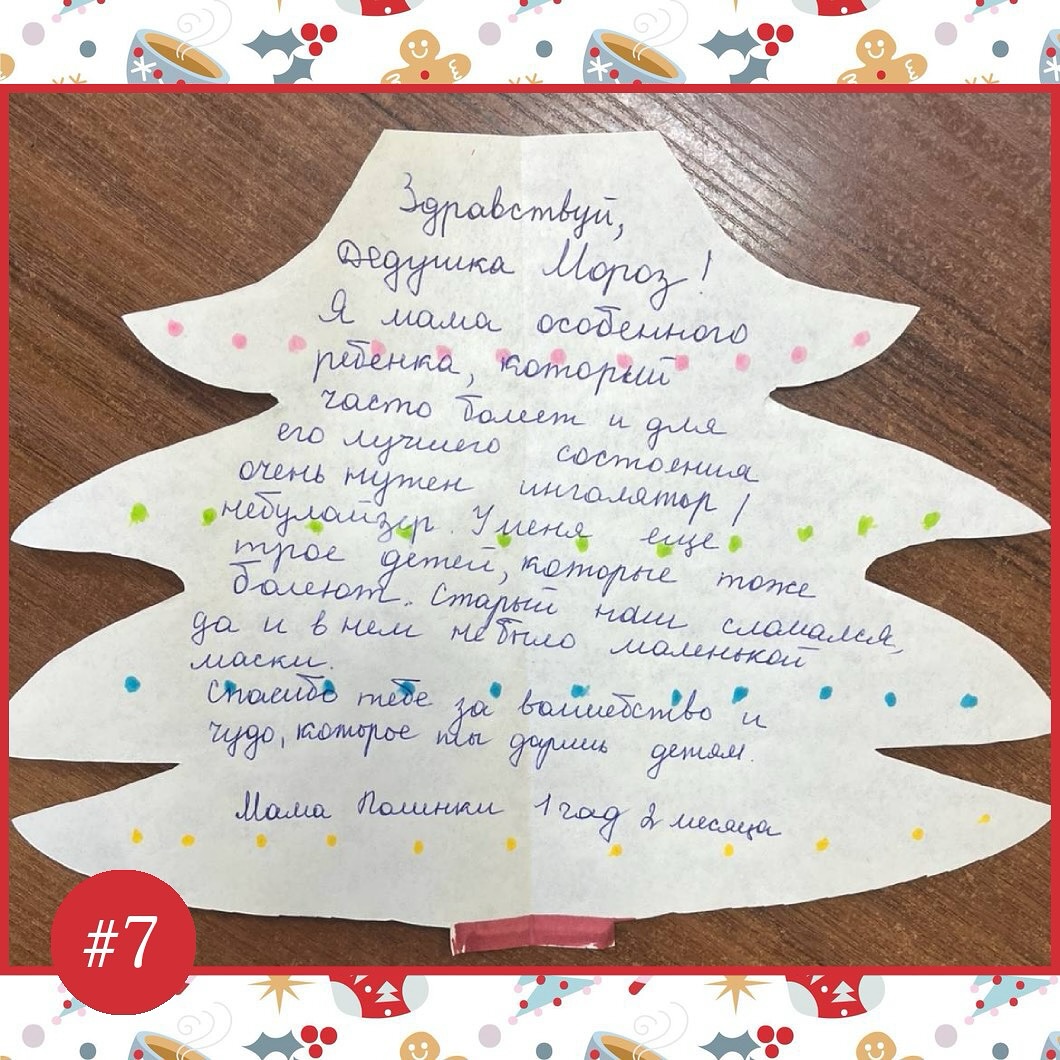 Здравствуй,
Дедушка Мороз!
Я мама особенного
ребенка, который
часто болеет и для
его лучшего состояния
очень нужен ингалятор /
небулайзер. У меня еще
трое детей, которые тоже
болеют. Старый наш сломался,
да и в нем не было маленькой
маски.
Спасибо тебе за волшебство и
чудо, которое ты даришь детям.
Мама Полинки 1 год 2 месяца
#7